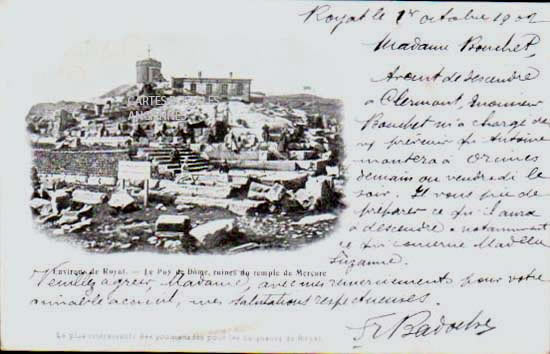 Royat le 1er octobre 1902
Madame Bouchet,
Avant de descendre
à Clermont, Monsieur
Bouchet m'a chargé de
prévenir qu'Antoine
montera à Orcines
demain ou vendredi le
soir. Il vous prie de
préparer ce qu'il aura
à descendre & notamment
ce qui concerne Madelle
Suzanne.
Veuillez agréer, Madame, avec mes remerciements pour votre
aimable accueil, mes salutations respectueuses.
CARTES POSTALES
ANCIENNES
Environs de Royat. — Le Puy de Dôme, ruines du temple de Mercure
La plus intéressante des promenades pour les baigneurs de Royat.